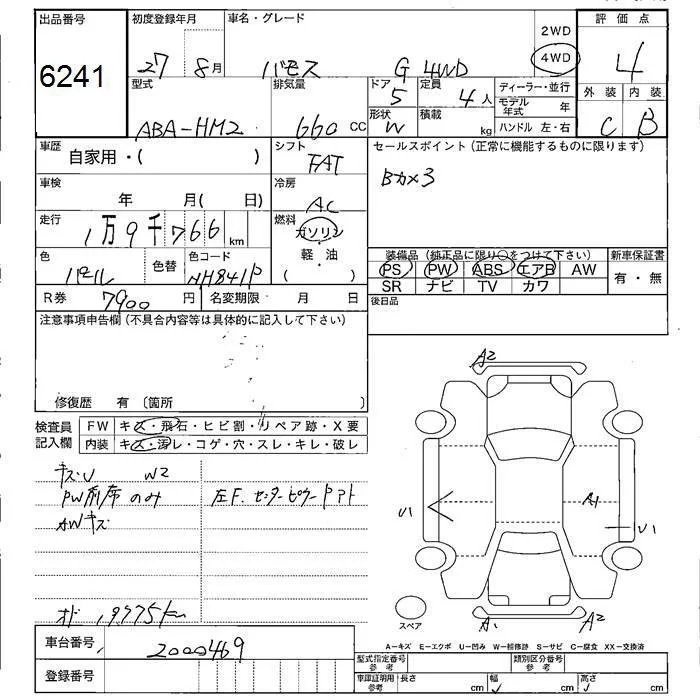 出品番号 初度登録年月 車名・グレード 2WD 評価点
6241 27年 8月 バモス G 4WD 4WD 4
型式 排気量 ドア 5 定員 4人 ディーラー・並行 外装 内装
ABA-HM2 660 CC 形状 W 積載 kg モデル年式 年 C B
ハンドル 左・右
車歴 自家用・( ) シフト FAT セールスポイント (正常に機能するものに限ります)
車検 年 月( 日) 冷房 AC
走行 1万9千766 km 燃料 ガソリン・軽油 ( )
色 パール 色替 色コード NH841P 装備品 (純正品に限り○をつけて下さい) 新車保証書
PS PW ABS エアB AW 有・無
SR ナビ TV カワ
R券 7900 円 名変期限 月 日 後日品
注意事項申告欄 (不具合内容等は具体的に記入して下さい)
修復歴 有 〔箇所 〕
検査員記入欄 FW キズ・飛石・ヒビ割・リペア跡・X要
内装 キズ・汚レ・コゲ・穴・スレ・キレ・破レ
キズU W2
PW前席のみ 左F.センターピラー
AWキズ
19775km
A2
U1 A1 U1
A1 A2
スペア
A-キズ E-エクボ U-凹み W-補修跡 S-サビ C-腐食 XX-交換済
車台番号 2000469 型式指定番号 参考 類別区分番号 参考
登録番号 車庫証明用 参考 長さ cm 幅 cm 高さ cm